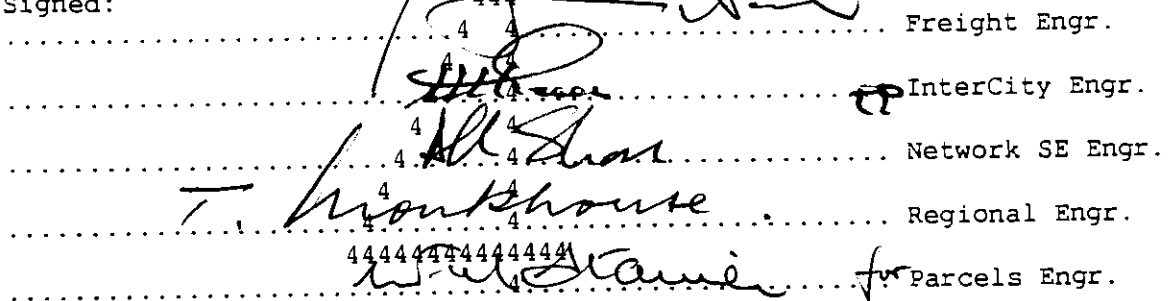 Signed:
444
.............................4...4........................... Freight Engr.
4 4
.............................4............................... pp InterCity Engr.
4 4
.............................4...4........................... Network SE Engr.
4 4
T. Monkhouse
.............................4...4........................... Regional Engr.
444444444444444
.............................4............................... for Parcels Engr.